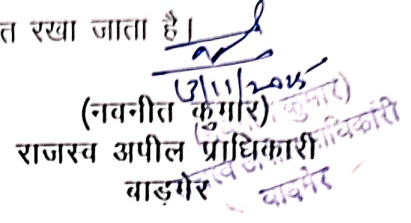 त रखा जाता है।
13/11/2025
(नवनीत कुमार)
राजस्व अपील प्राधिकारी
बाड़मेर
कुमार)
प्राधिकारी
बाड़मेर